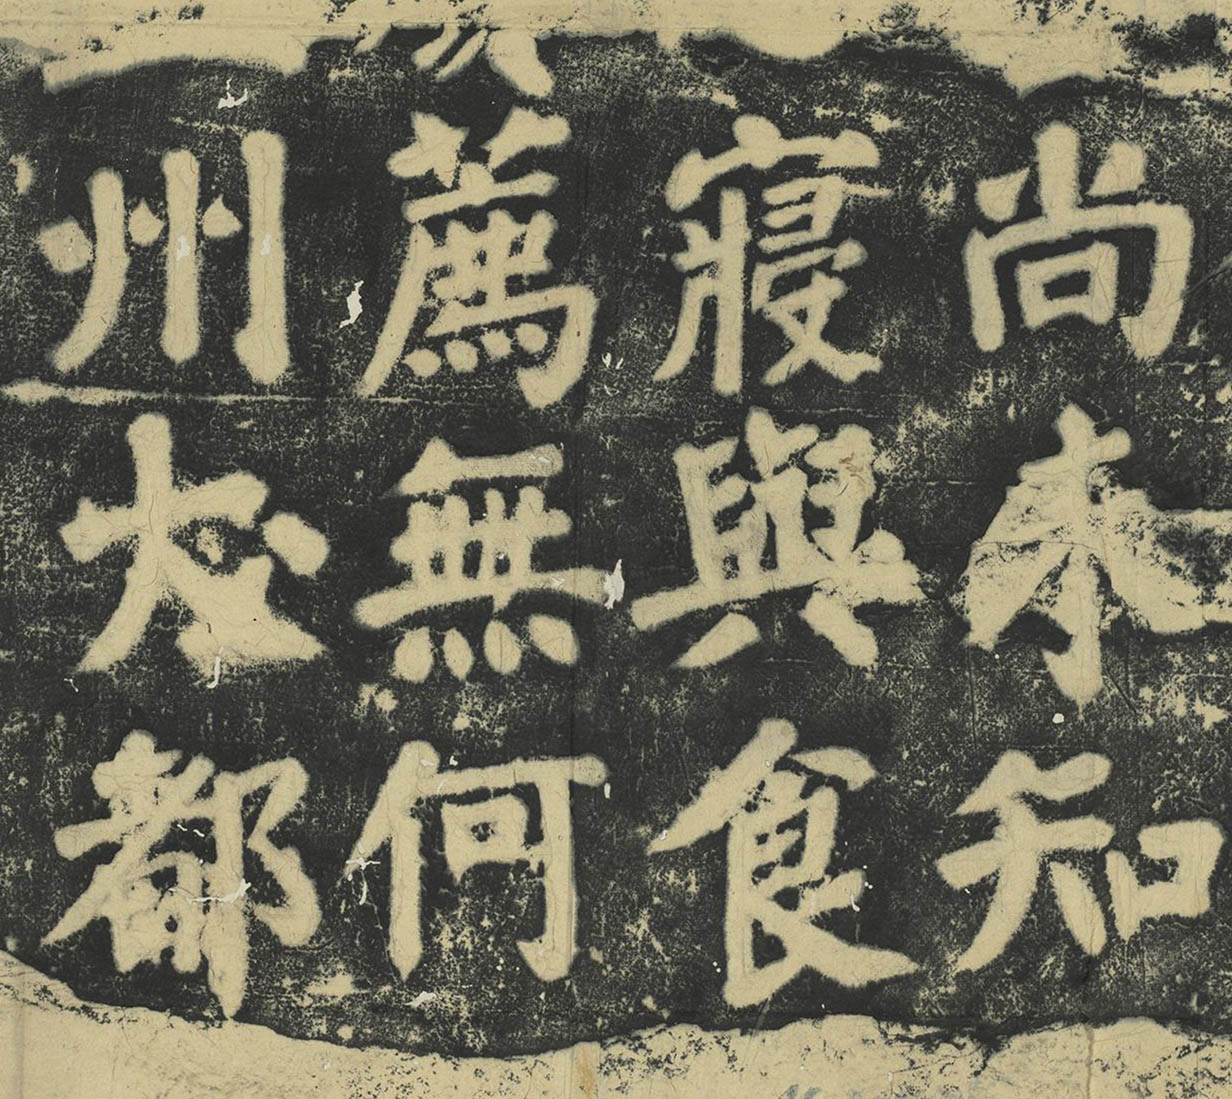 尚知
寢與食
薦無何
州大都